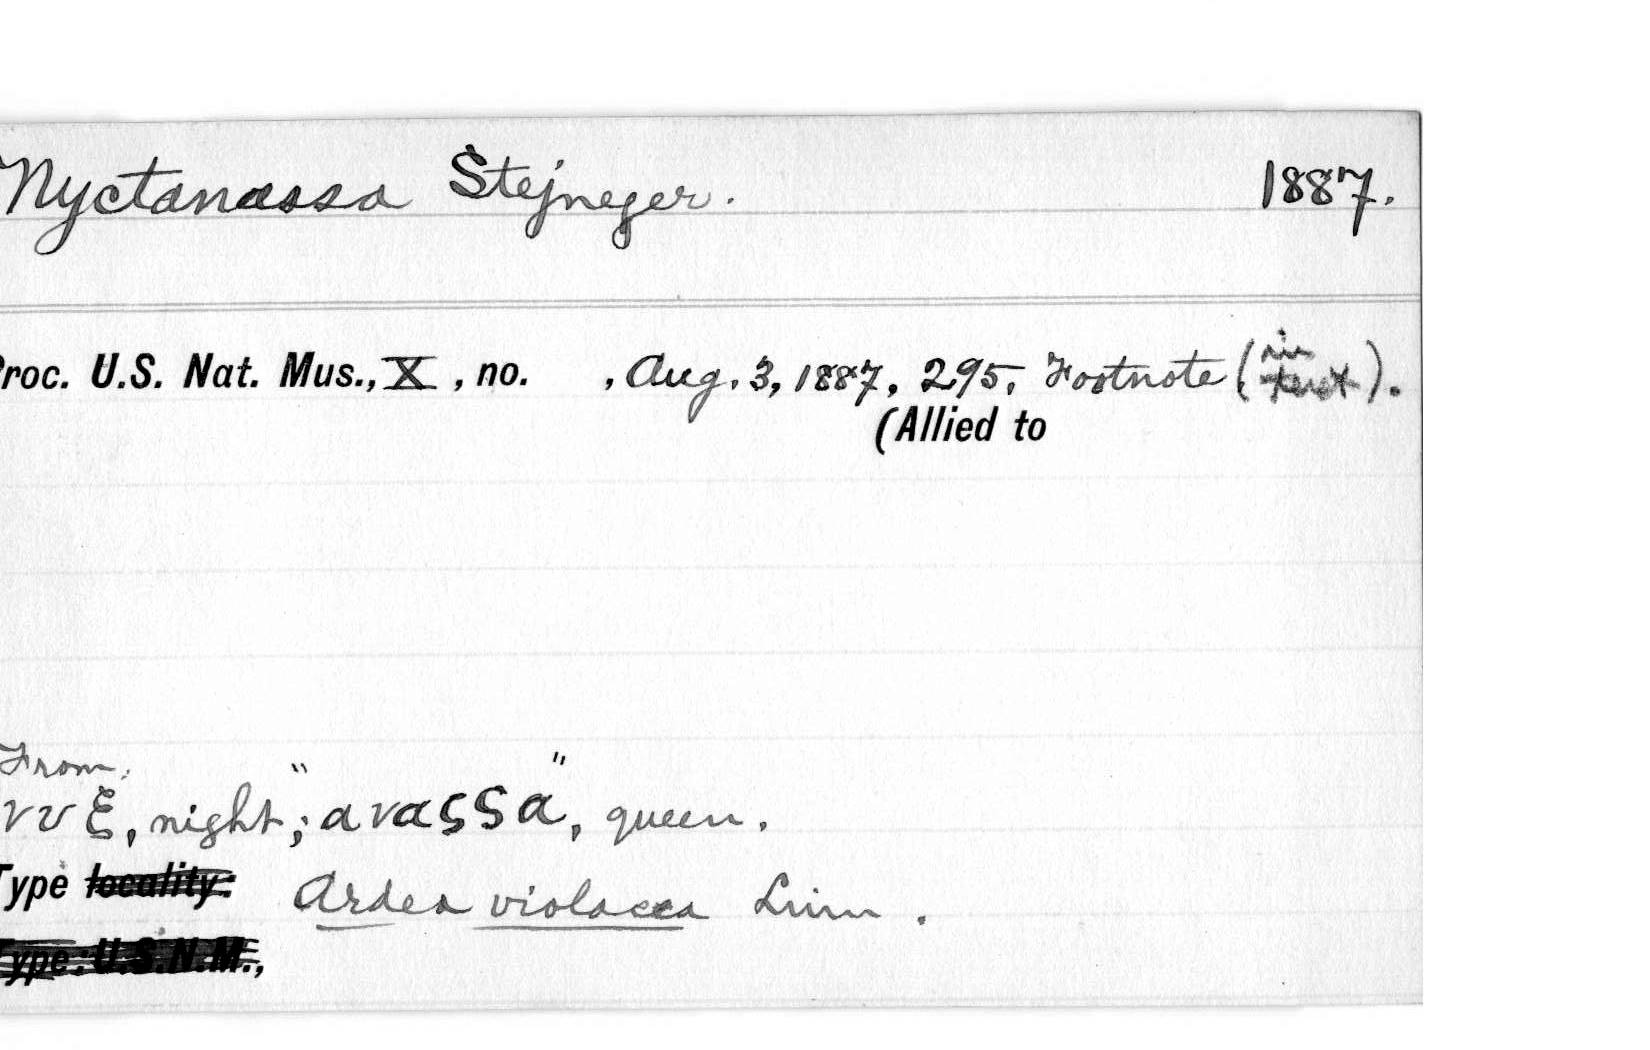 Nyctanassa Stejneger. 1887.
Proc. U.S. Nat. Mus., X, no. , Aug. 3, 1887, 295, Footnote (in text).
(Allied to
From
νυξ, night; "αναςςα", queen.
Type locality: Ardea violacea Linn.
Type: U.S.N.M.,